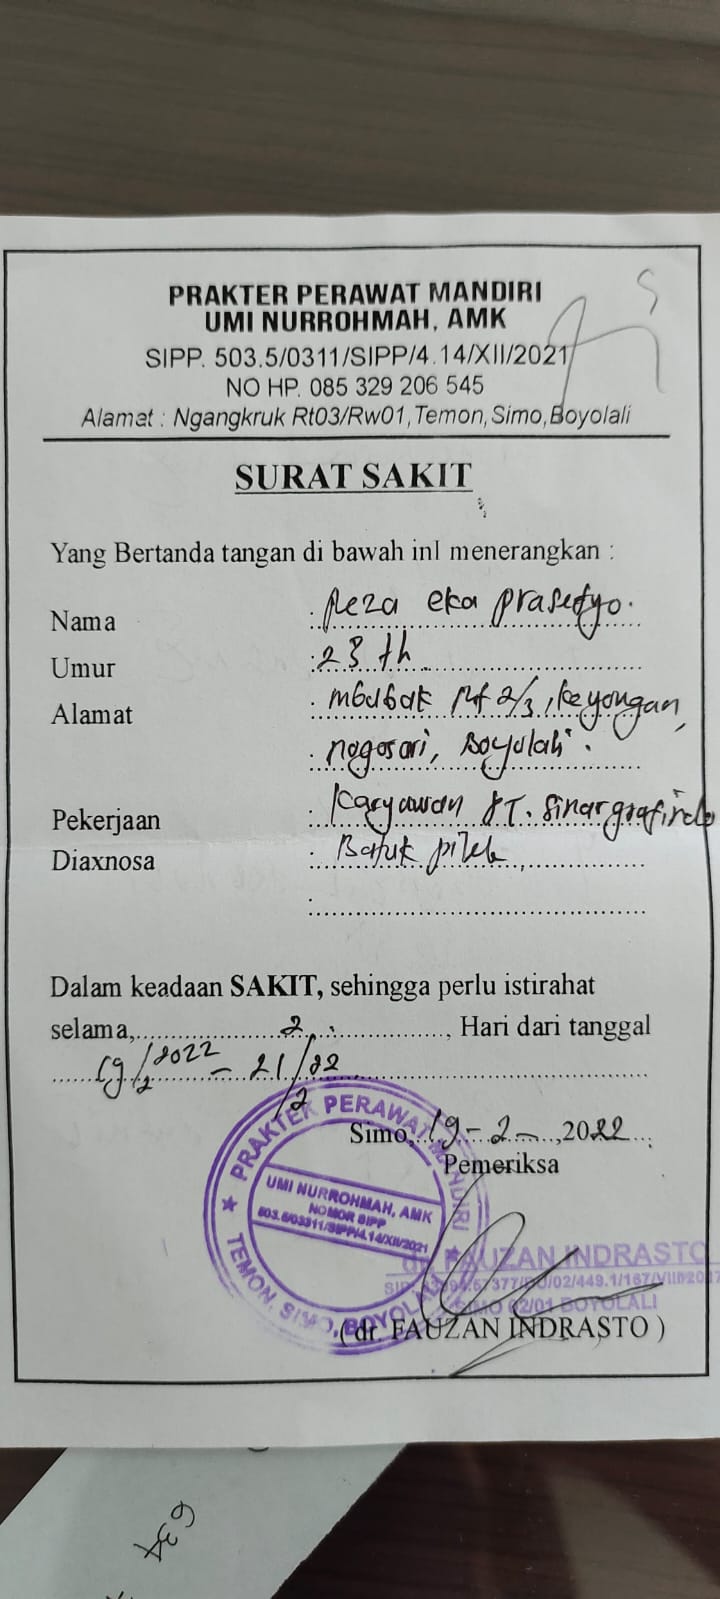 PRAKTER PERAWAT MANDIRI
UMI NURROHMAH, AMK
SIPP. 503.5/0311/SIPP/4.14/XII/2021
NO HP. 085 329 206 545
Alamat : Ngangkruk Rt03/Rw01,Temon,Simo,Boyolali
SURAT SAKIT
Yang Bertanda tangan di bawah inI menerangkan :
Nama : Reza eka prasetyo.
Umur : 23 th
Alamat : mbabak Rt 2/3, keyongan,
: nogosari, Boyolali.
Pekerjaan : Karyawan PT. Sinar grafindo
Diaxnosa : Batuk pilek
Dalam keadaan SAKIT, sehingga perlu istirahat
selama, 2 , Hari dari tanggal
19/2 2022 - 21/2 22
Simo, 19-2-, 2022
Pemeriksa
PRAKTEK PERAWAT MANDIRI
UMI NURROHMAH, AMK
NOMOR SIPP
503.5/03311/SIPP/4.14/XII/2021
TEMON, SIMO, BOYOLALI
dr. FAUZAN INDRASTO
SIMO 02/01 BOYOLALI
( dr. FAUZAN INDRASTO )
634